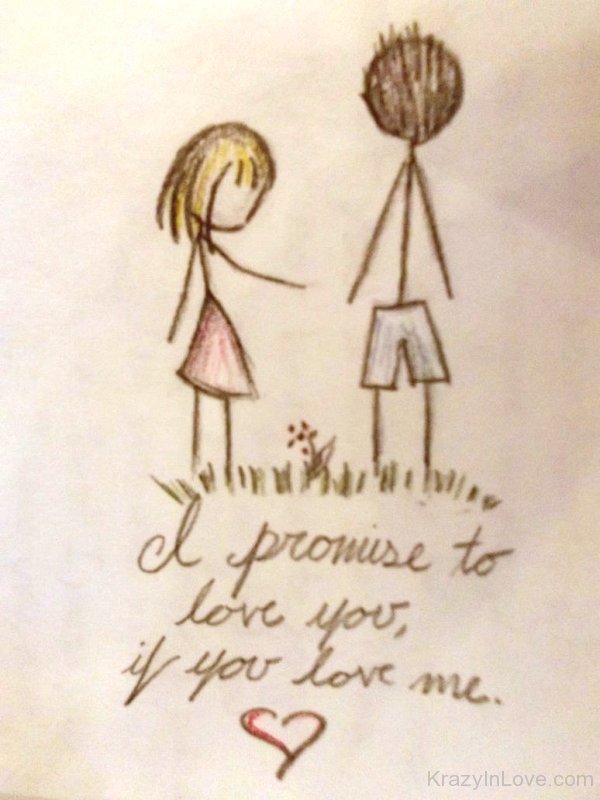 I promise to
love you,
if you love me.
KrazyInLove.com